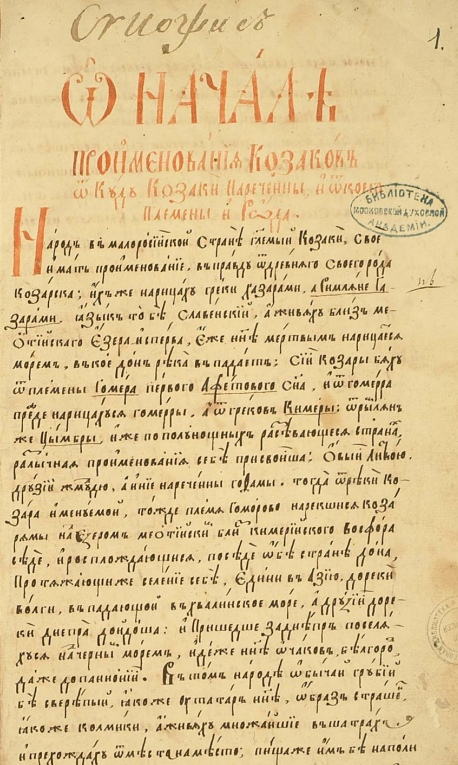 1.
Ѿ НАЧАЛѢ
ПРОИМЕНОВАНІЯ КОЗАКОВЪ
ѿ Кѹдѹ Козаки Нареченны, и ѿ коегѡ
Племены и Рода.
БИБЛІОТЕКА
МОСКОВСКОЙ ДУХОВНОЙ
АКАДЕМІИ.
Народъ въ малоросїйской Странѣ глемый Козаки, Свое
имать проименованїе, въправдѹ ѿ древняго Своегорода
Козарска; ихъже нарицахѹ греки хазарами, а Римляне Га-
зарами. языкъ то бѣ Славенскїй, а живяхѹ близъ ме-
отїйскаго Езера исперва, Еже ннѣ мертвымъ нарицаеся
моремъ, въкое донъ рѣка въпадаетъ; Сїи Козары бяхѹ
ѿ племены Гомера первого Афетового Сна, и ѿ гомерра
пре́де нарицахѹся гомерры, а ѿ грековъ Кимеры; ѿ римлянъ
же Цымбры, иже по полѹнощныхъ разсѣвающеся странах
различная проименованїя себѣ присвоиша; Овый Литвою,
дрѹзїй жмѹдю, а инїе нареченны готами. тогда ѿ рѣки Ко-
зара именѹемой, тожде племя гоморово нарекшися Коза
рямы над Езеромъ меотїйским близ кимерїйского восфора
сѣде, и росплождающиеся, посѣде ѡбѣ странѣ дона,
Протяжающиже селенїе себѣ, Едини въ Азїю, дореки
волги, въпадающой въхвалинское море, а дрѹзїй доре-
ки днепра дойдоша: и Пришедше заднѣпръ поселя-
хѹся над черным моремъ, идеже ннѣ ѡчаковъ, бѣлгород
даже до паннонїй. Въ том народѣ ѡбычаи грѹбїй
бѣ сверѣпый, якоже ѹ татаръ ннѣ, ѡбразъ страшен
якоже колмики, а живяхѹ множайшїе въшатрах
и преходяхѹ ѿ мѣста на мѣсто; пищаже имъ бѣ наполи